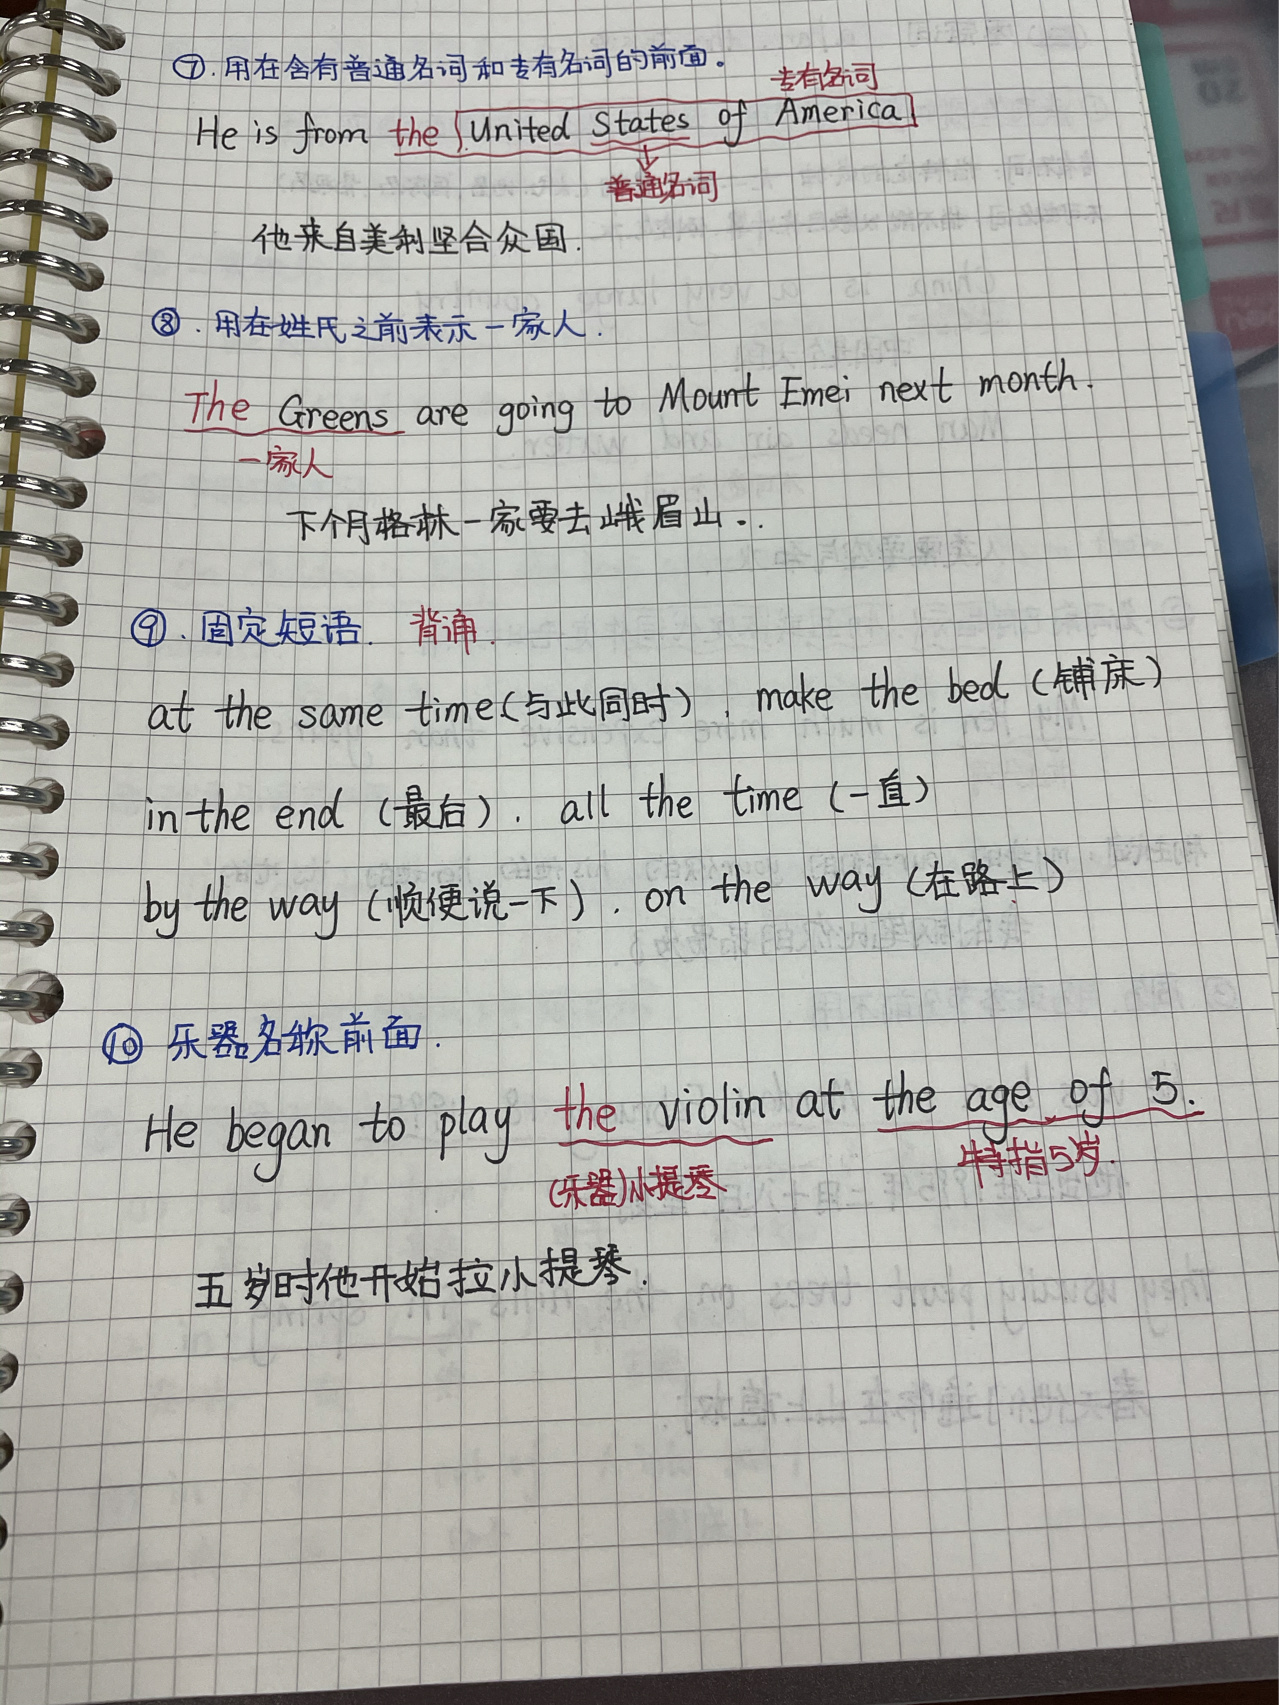 ⑦.用在含有普通名词和专有名词的前面。
专有名词
He is from the United States of America
普通名词
他来自美利坚合众国.
⑧.用在姓氏之前表示一家人.
The Greens are going to Mount Emei next month.
一家人
下个月格林一家要去峨眉山..
⑨.固定短语. 背诵.
at the same time(与此同时), make the bed (铺床)
in the end (最后). all the time (一直)
by the way (顺便说一下). on the way (在路上)
⑩ 乐器名称前面.
He began to play the violin at the age of 5.
(乐器)小提琴 特指5岁.
五岁时他开始拉小提琴.